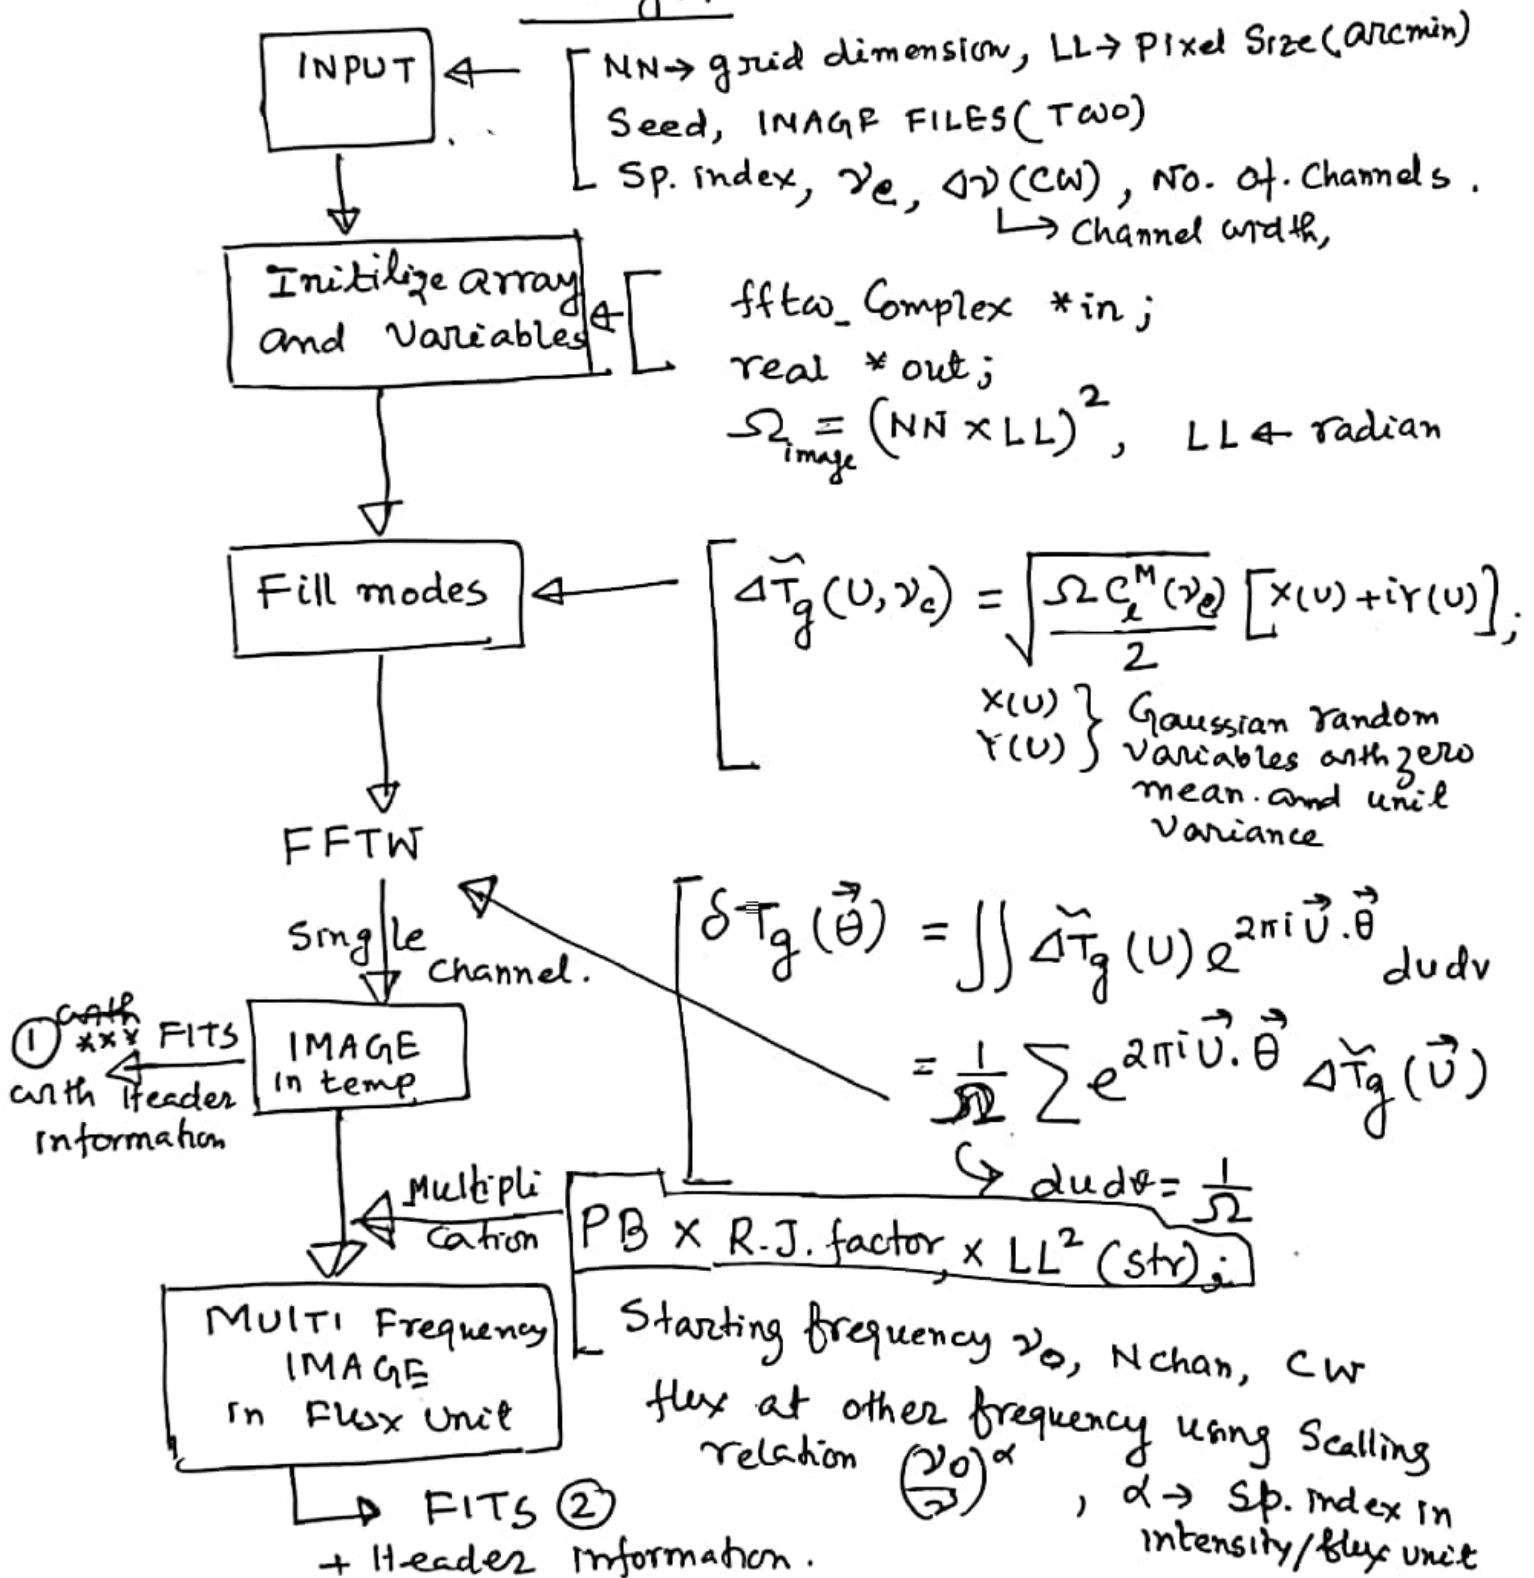 INPUT
NN → grid dimension, LL → Pixel Size (arcmin)
Seed, IMAGE FILES (TWO)
Sp. index, νe, Δν (CW), No. of. Channels.
↳ Channel width,
Initilize array
and Variables
fftw_Complex *in;
real *out;
Ω_image = (NN × LL)², LL ← radian
Fill modes
ΔT̃g(U, νc) = √(Ω C_ℓ^M(νe)/2) [X(U) + iY(U)];
X(U)
Y(U)
} Gaussian random
variables with zero
mean. and unit
Variance
FFTW
Single
Channel.
δTg(θ⃗) = ∬ ΔT̃g(U) e^{2πi U⃗.θ⃗} dudv
= 1/Ω ∑ e^{2πi U⃗.θ⃗} ΔT̃g(U⃗)
↳ dudv = 1/Ω
IMAGE
in temp
① *** FITS
with Header
information
Multipli
cation
PB × R.J. factor × LL² (str);
Starting frequency ν0, Nchan, CW
flux at other frequency using Scalling
relation (ν0/ν)^α, α → Sp. index in
intensity/flux unit
MULTI Frequency
IMAGE
in Flux Unit
FITS ②
+ Header information.